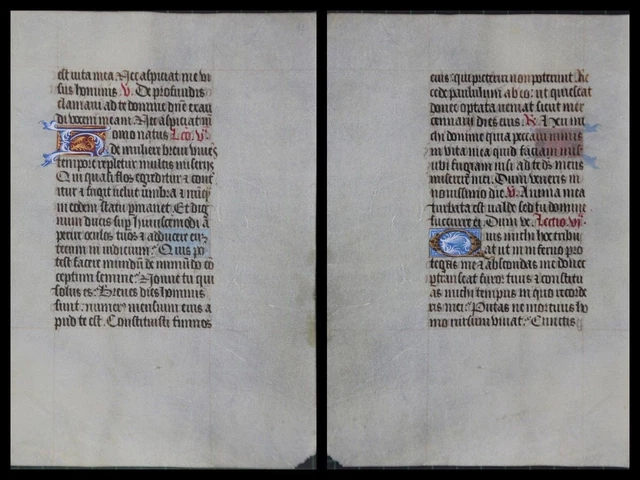 est uita mea Nec aspiciat me ui
sus hominis V. De profundis
clamaui ad te domine dne exau
di vocem meam. Nec aspiciat m
Homo natus Lco. v.
de muliere breui viuens
tempore repletur multis miserijs
Qui quasi flos egreditur et cont
ritur et fugit uelut umbra et nūq
in eodem statu pmanet Et dig
num ducis sup huiuscemodi a
perire oculos tuos et adducere eū
tecum in iudicium. Quis po
test facere mundū de mundo co
ceptum semine Nonne tu qui
solus es. Breues dies hominis
sunt. numerꝰ mensium eius a
pud te est. Constituisti terminos
eius. qui preteriri non poterunt Re
cede paululum ab eo. ut quiescat
donec optata ueniat sicut mer
cennarij dies eius. R. Ve mi
chi domine quia peccaui nimis
in vita mea quid faciam miser
ubi fugiam nisi ad te ds meus
miserere mei. Dum veneris in
nouissimo die. V. Anima mea
turbata est ualde sed tu domine
succurre ei. Dum ve. Lectio. vi.
Quis michi hoc tribu
at ut in inferno pro
tegas me et abscondas me donec
ptranseat furor tuus et constitu
as michi tempus in quo recorde
ris mei. Putas ne mortuus ho
mo rursum viuat. Cunctis